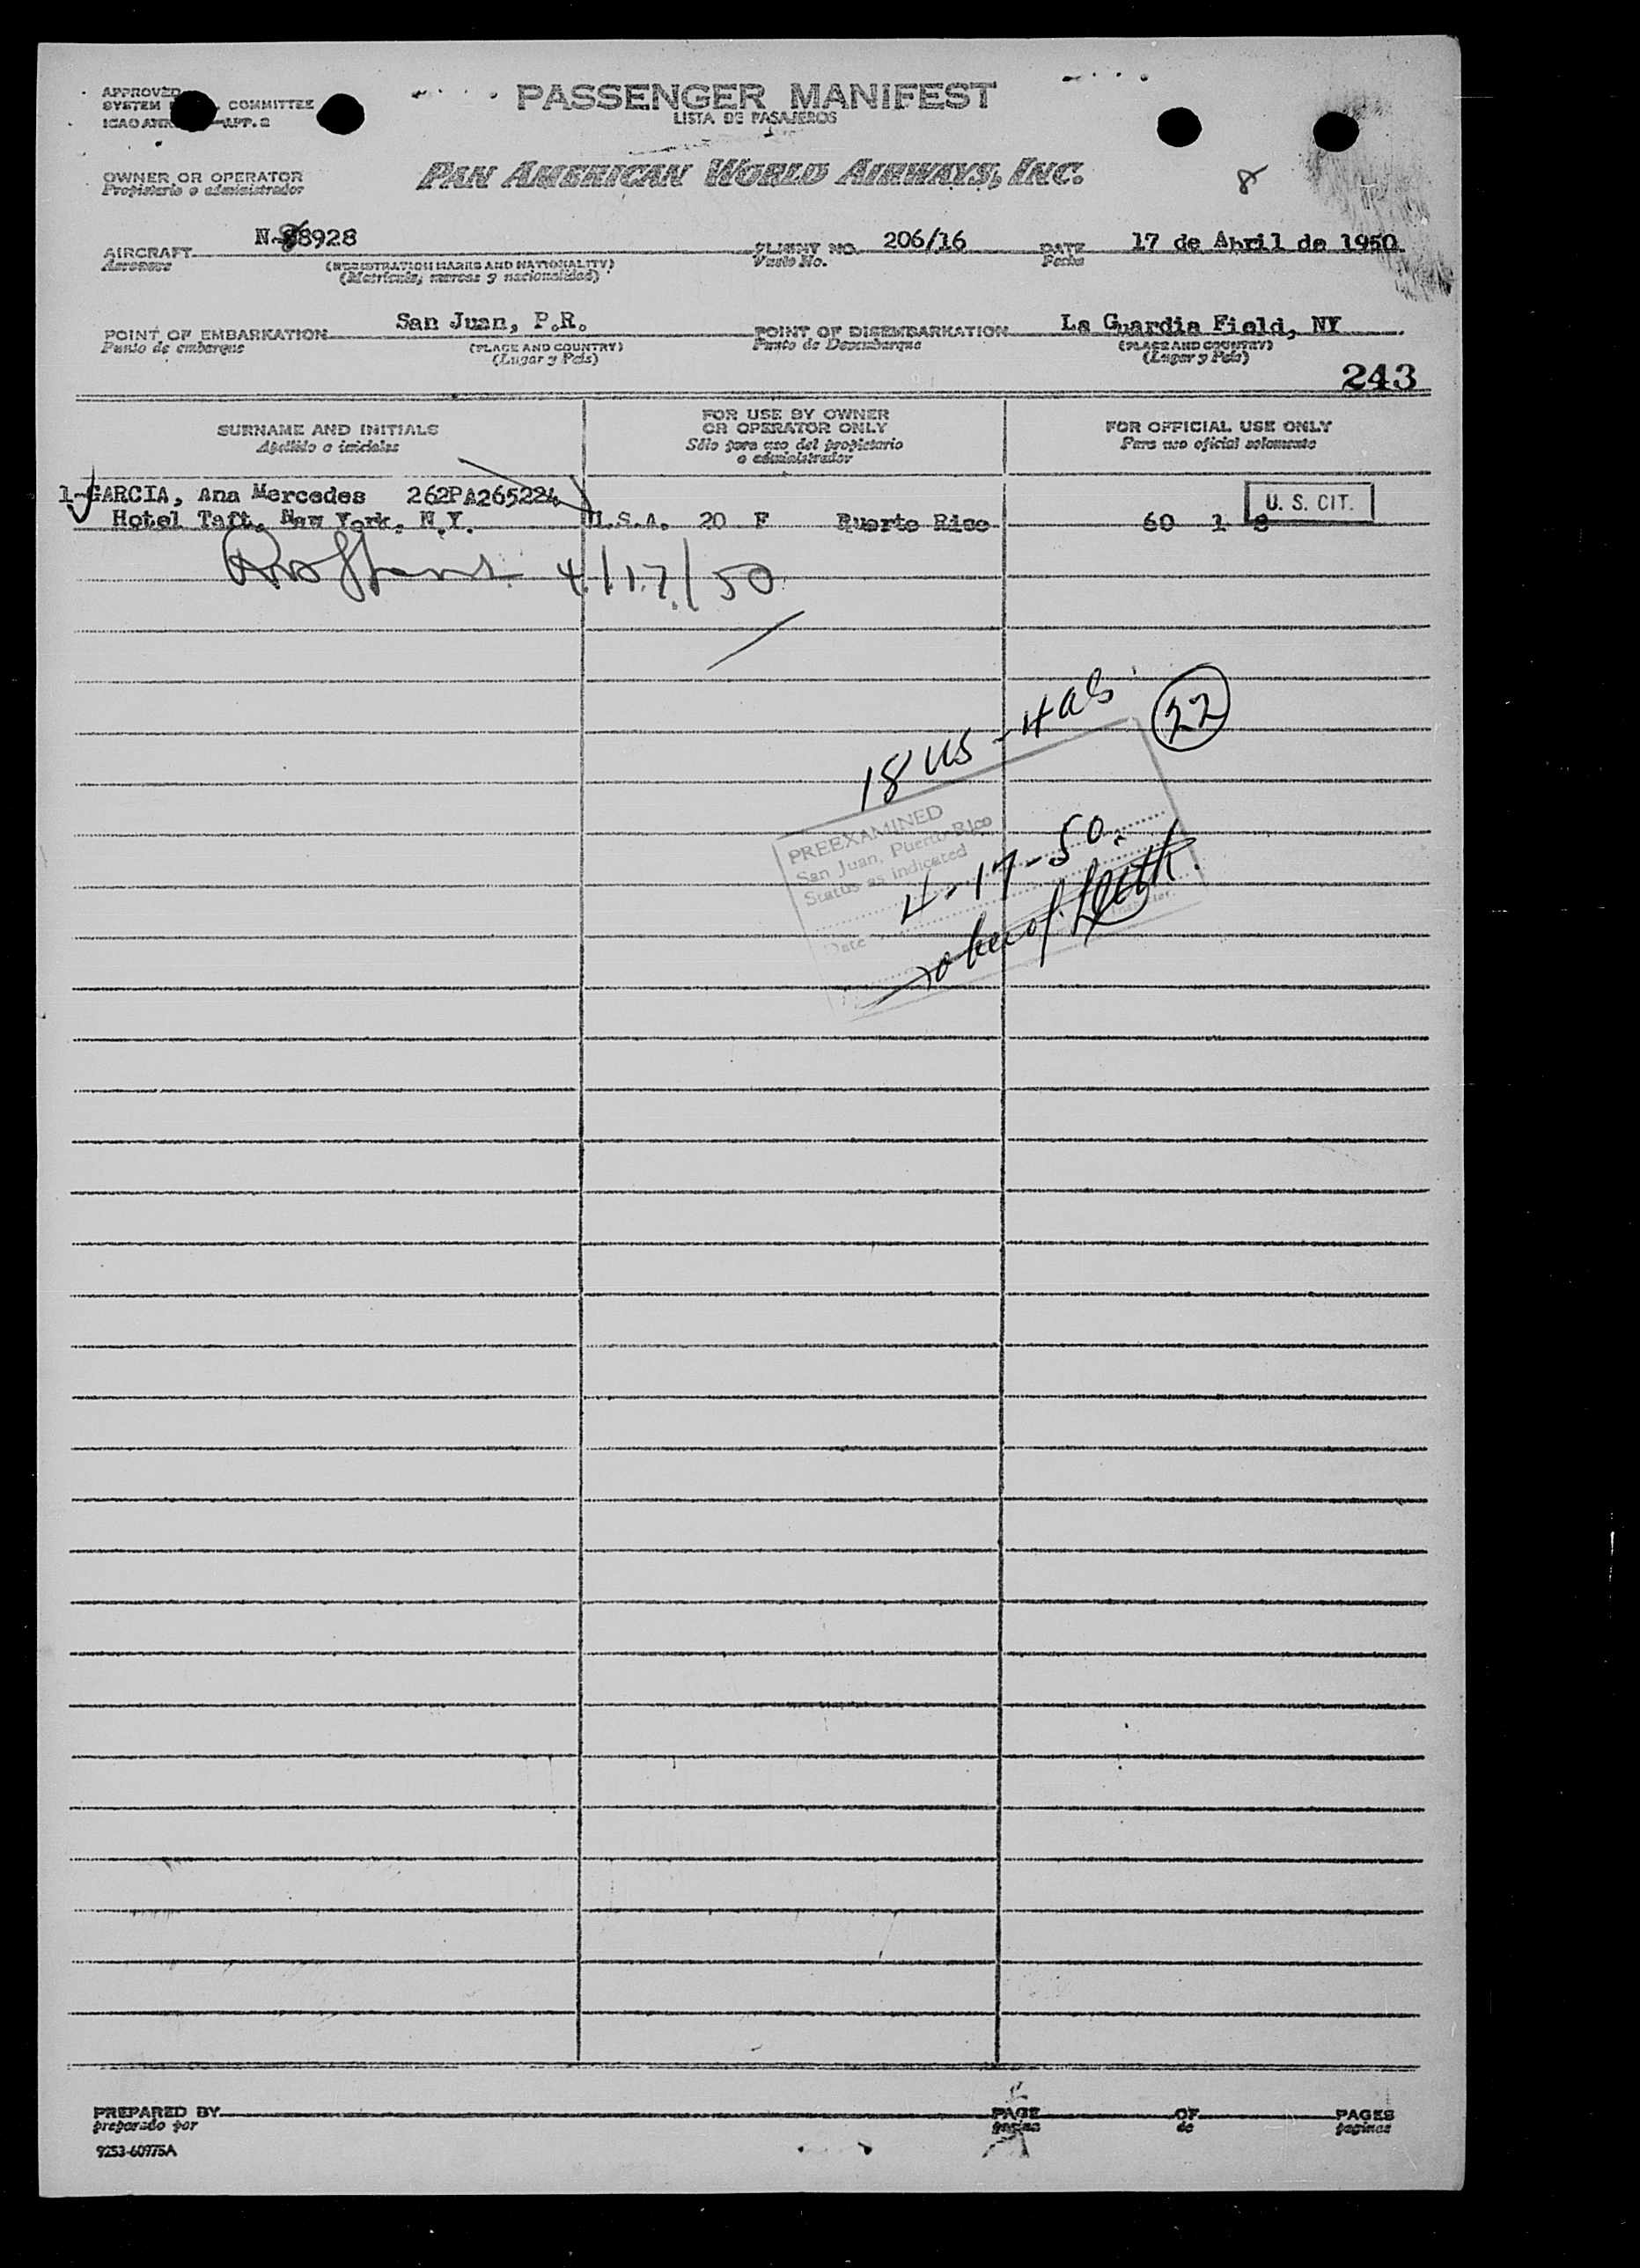 APPROVED
SYSTEM COMMITTEE
ICAO APP. 2
PASSENGER MANIFEST
LISTA DE PASAJEROS
OWNER OR OPERATOR
Propietario o administrador
PAN AMERICAN WORLD AIRWAYS, INC.
8
AIRCRAFT N-88928 FLIGHT NO. 206/16 DATE 17 de Abril de 1950
Aeronave Vuelo No. Fecha
(REGISTRATION MARKS AND NATIONALITY)
(Matrícula, marcas y nacionalidad)
POINT OF EMBARKATION San Juan, P.R. POINT OF DISEMBARKATION La Guardia Field, NY
Punto de embarque (PLACE AND COUNTRY) Punto de Desembarque (PLACE AND COUNTRY)
(Lugar y País) (Lugar y País)
243
SURNAME AND INITIALS
Apellido o iniciales
FOR USE BY OWNER
OR OPERATOR ONLY
Sólo para uso del propietario
o administrador
FOR OFFICIAL USE ONLY
Para uso oficial solamente
1-GARCIA, Ana Mercedes 262PA265224 U. S. CIT.
Hotel Taft, New York, N.Y. U.S.A. 20 F Puerto Rico 60 1 8
4/17/50
18 US - 4 als 22
PREEXAMINED
San Juan, Puerto Rico
Status as indicated
Date 4-17-50
PREPARED BY PAGE OF PAGES
preparado por pagina de paginas
9253-60975A